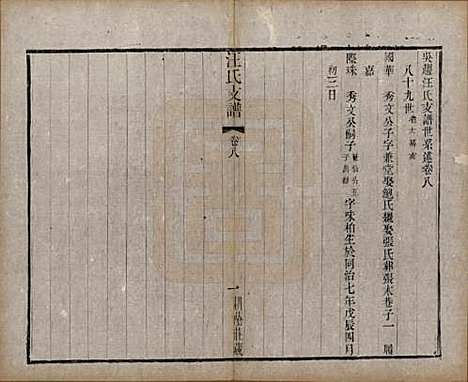 吳趨汪氏支譜世系述卷八
八十九世
國華 秀文公子字兼堂娶鮑氏繼娶張氏葬張木巷子一 嘉
際珠 秀文公嗣子 字味柏生於同治七年戊辰四月
初三日
汪氏支譜
卷八
一 耕蔭莊藏